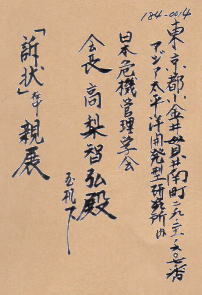 184-0014
東京都小金井市貫井南町二九‐二三‐五〇七番
アジア太平洋開発型研究所内
日本危機管理学会
会長 高梨智弘殿
玉机下
「訴状」在中 親展